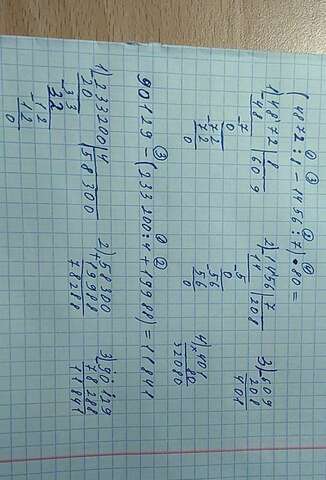 ① ③ ② ④
(4872 : 8 − 1456 : 7) · 80 =
1) 4872 | 8   2) 1456 | 7   3) 609
48 | 609   14 | 208   208
-7   -5   401
0   0
-72   -56   4) 401
72   56   × 80
0   0   32080
③ ① ②
90129 − (233200 : 4 + 19988) = 11841
1) 233200 | 4   2) 58300   3) 90129
20 | 58300   + 19988   78288
-33   78288   11841
32
-12
12
0